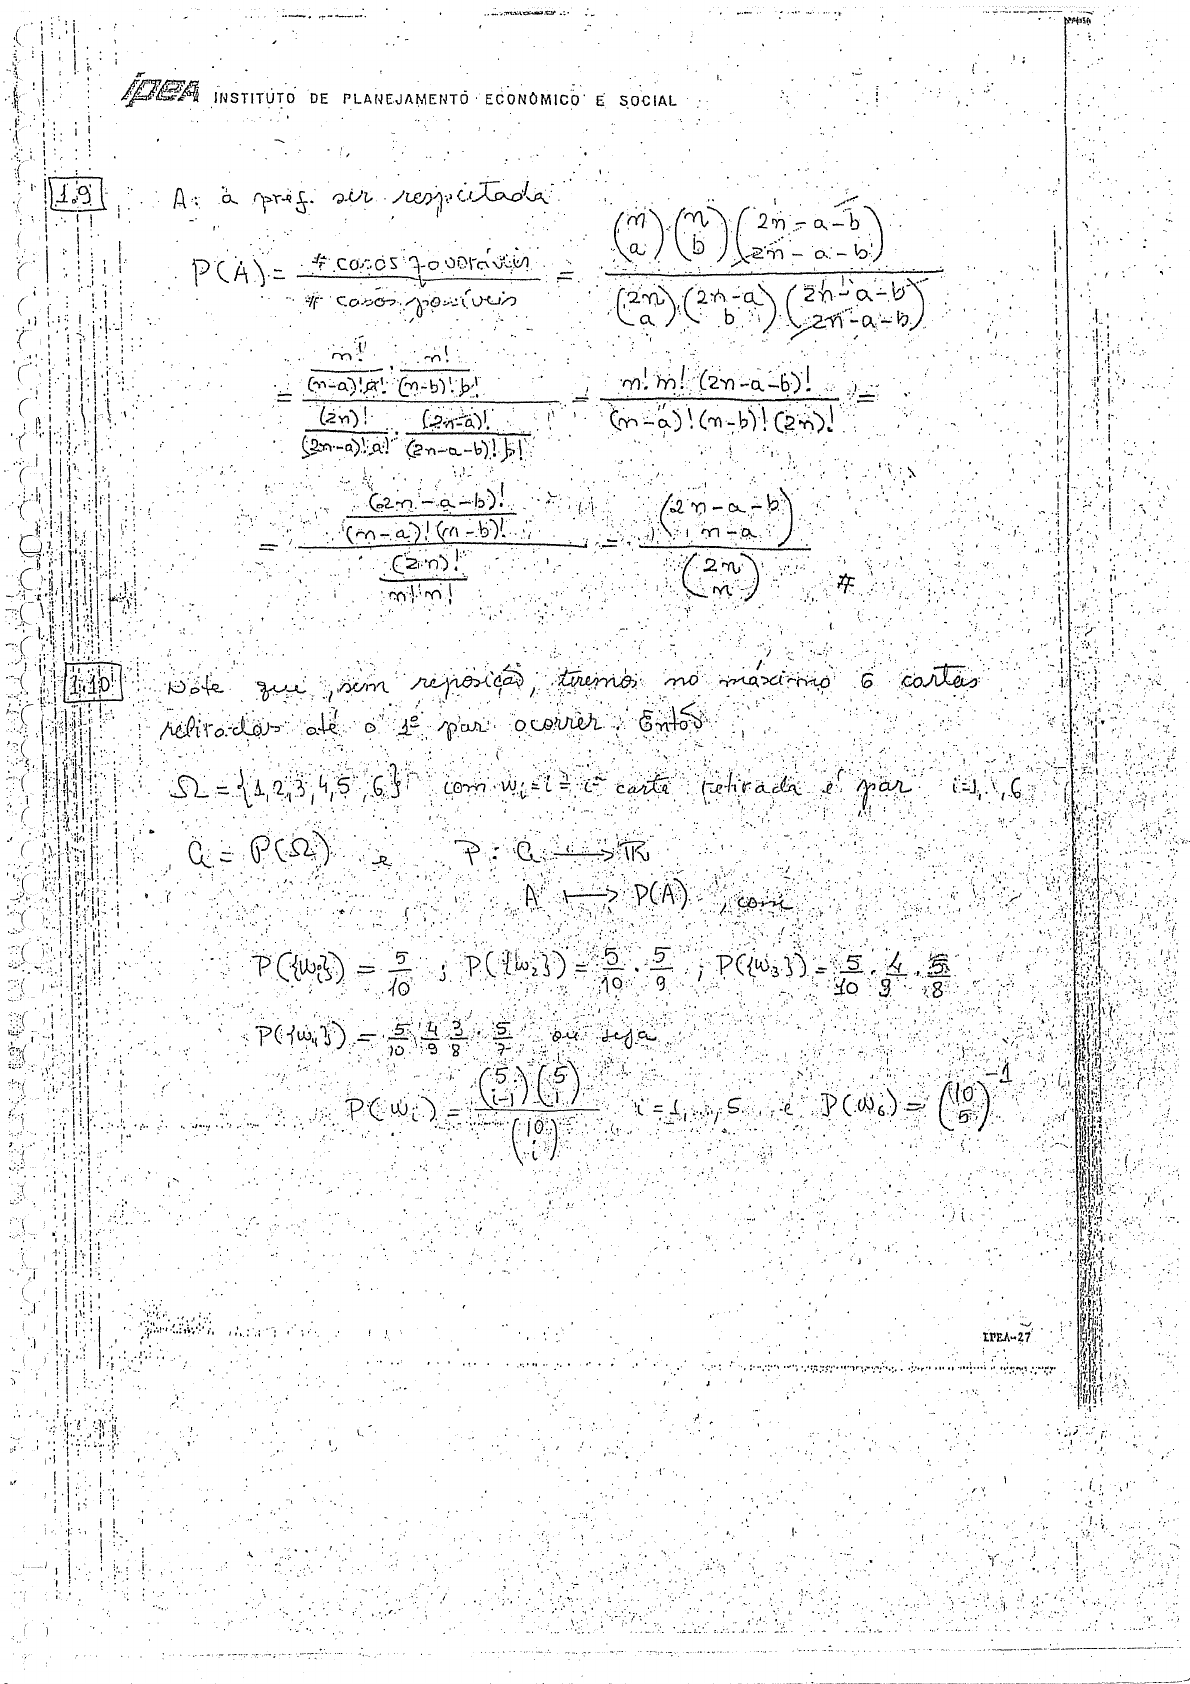 ipea INSTITUTO DE PLANEJAMENTO ECONÔMICO E SOCIAL
1.9 A: a pref. ser respeitada
P(A) = # casos favoráveis / # casos possíveis = (n a)·(n b)·(2n-a-b 2n-a-b) / (2n a)·(2n-a b)·(2n-a-b 2n-a-b)
= [n!/((n-a)!a!) · n!/((n-b)!b!)] / [(2n)!/((2n-a)!a!) · (2n-a)!/((2n-a-b)!b!)] = n! n! (2n-a-b)! / (n-a)!(n-b)!(2n)! =
= [(2n-a-b)! / (n-a)!(n-b)!] / [(2n)! / n!n!] = (2n-a-b n-a) / (2n n) #
1.10 Note que, sem reposição, tiremos no máximo 6 cartas
retiradas até o 1º par ocorrer. Então
Ω = {1,2,3,4,5,6} com wᵢ = i = iª carta retirada é par i=1,..,6
a = P(Ω) e P: a ⟶ ℝ
A ⟼ P(A), com
P({w₁}) = 5/10 ; P({w₂}) = 5/10 · 5/9 ; P({w₃}) = 5/10 · 4/9 · 5/8
P({w₄}) = 5/10 4/9 3/8 · 5/7 ou seja
P(wᵢ) = (5 i-1)(5 1) / (10 i) i=1,..,5 e P(w₆) = (10 5)⁻¹
IPEA-27